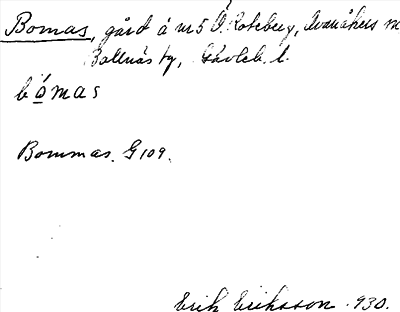 Bomas, gård å nr 5 Ö. Roteberg, Ovanåkers
Bollnäs tg, Gävleb. l.
bómas
Bommas. G 109.
Erik Eriksson 1930.